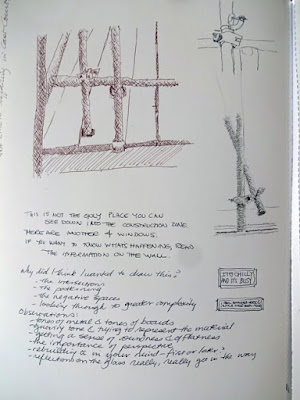 THIS IS NOT THE ONLY PLACE YOU CAN
SEE DOWN INTO THE CONSTRUCTION ZONE
THERE ARE ANOTHER 4 WINDOWS.
IF YOU WANT TO KNOW WHAT'S HAPPENING, READ
THE INFORMATION ON THE WALL.
Why did I think I wanted to draw this?
- the intersections
- the patterning
- the negative spaces
- looking through to greater complexity
Observations:
- tones of metal & tones of boards
- ignoring tone & trying to represent the material
- getting a sense of roundness & flatness
- the importance of perspective
- rebuilding it in your mind - first or later?
- reflections on the glass really, really go in the way
IT'S CHILLY
AND IT'S DUSTY